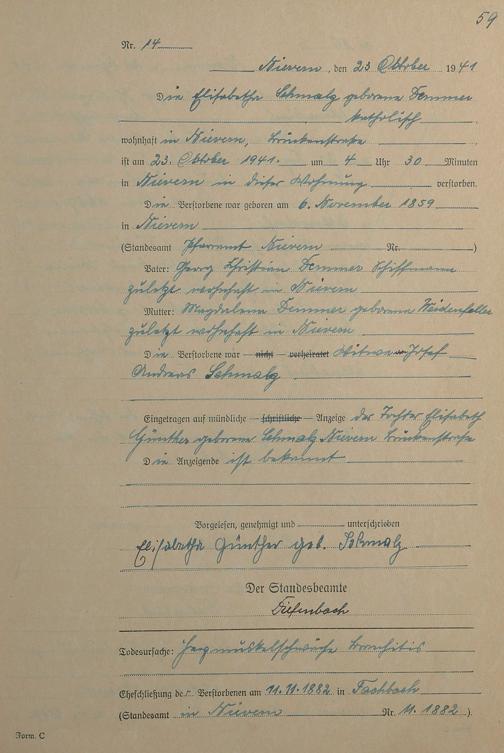 59
Nr. 14
Nievern, den 23 Oktober 1941
Die Elisabetha Schmalz geborene Demmer
katholisch
wohnhaft in Nievern, Brückenstraße
ist am 23. Oktober 1941. um 4 Uhr 30 Minuten
in Nievern in dieser Wohnung verstorben.
Die Verstorbene war geboren am 6. November 1859
in Nievern
(Standesamt Pfarramt Nievern Nr. )
Vater: Georg Christian Demmer Schiffmann
zuletzt wohnhaft in Nievern
Mutter: Magdalena Demmer geborene Weidenfeller
zuletzt wohnhaft in Nievern
Die Verstorbene war nicht verheiratet Witwe Josef
Andreas Schmalz
Eingetragen auf mündliche schriftliche Anzeige der Tochter Elisabeth
Günther geborene Schmalz Nievern Brückenstraße
Die Anzeigende ist bekannt
Vorgelesen, genehmigt und unterschrieben
Elisabetha Günther geb. Schmalz
Der Standesbeamte
Diefenbach
Todesursache: Herzmuskelschwäche Bronchitis
Eheschließung der Verstorbenen am 11.11.1882 in Fachbach
(Standesamt in Nievern Nr. 11.1882)
Form. C